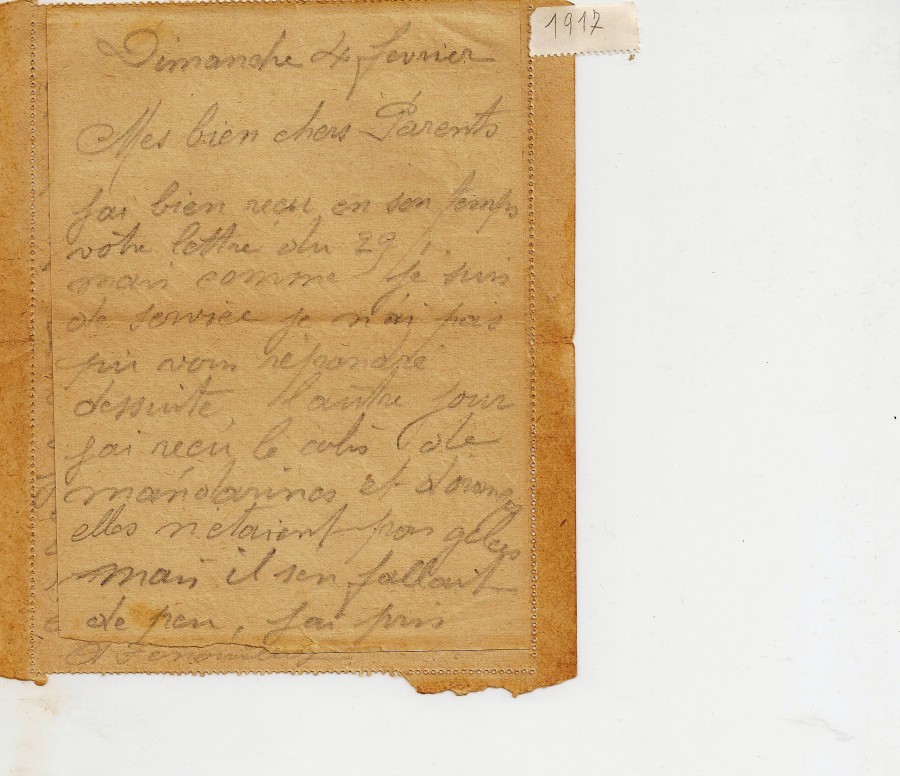 1917
Dimanche 4 fevrier
Mes bien chers Parents
J'ai bien recu en son temps
vôtre lettre du 29/1.
mais comme je suis
de service je n'ai pas
pu vous répondre
dessuite, l'autre jour
j'ai recu le colis de
mandarines et d'oranges
elles n'étaient pas gelées
mais il s'en fallait
de peu, j'ai pris